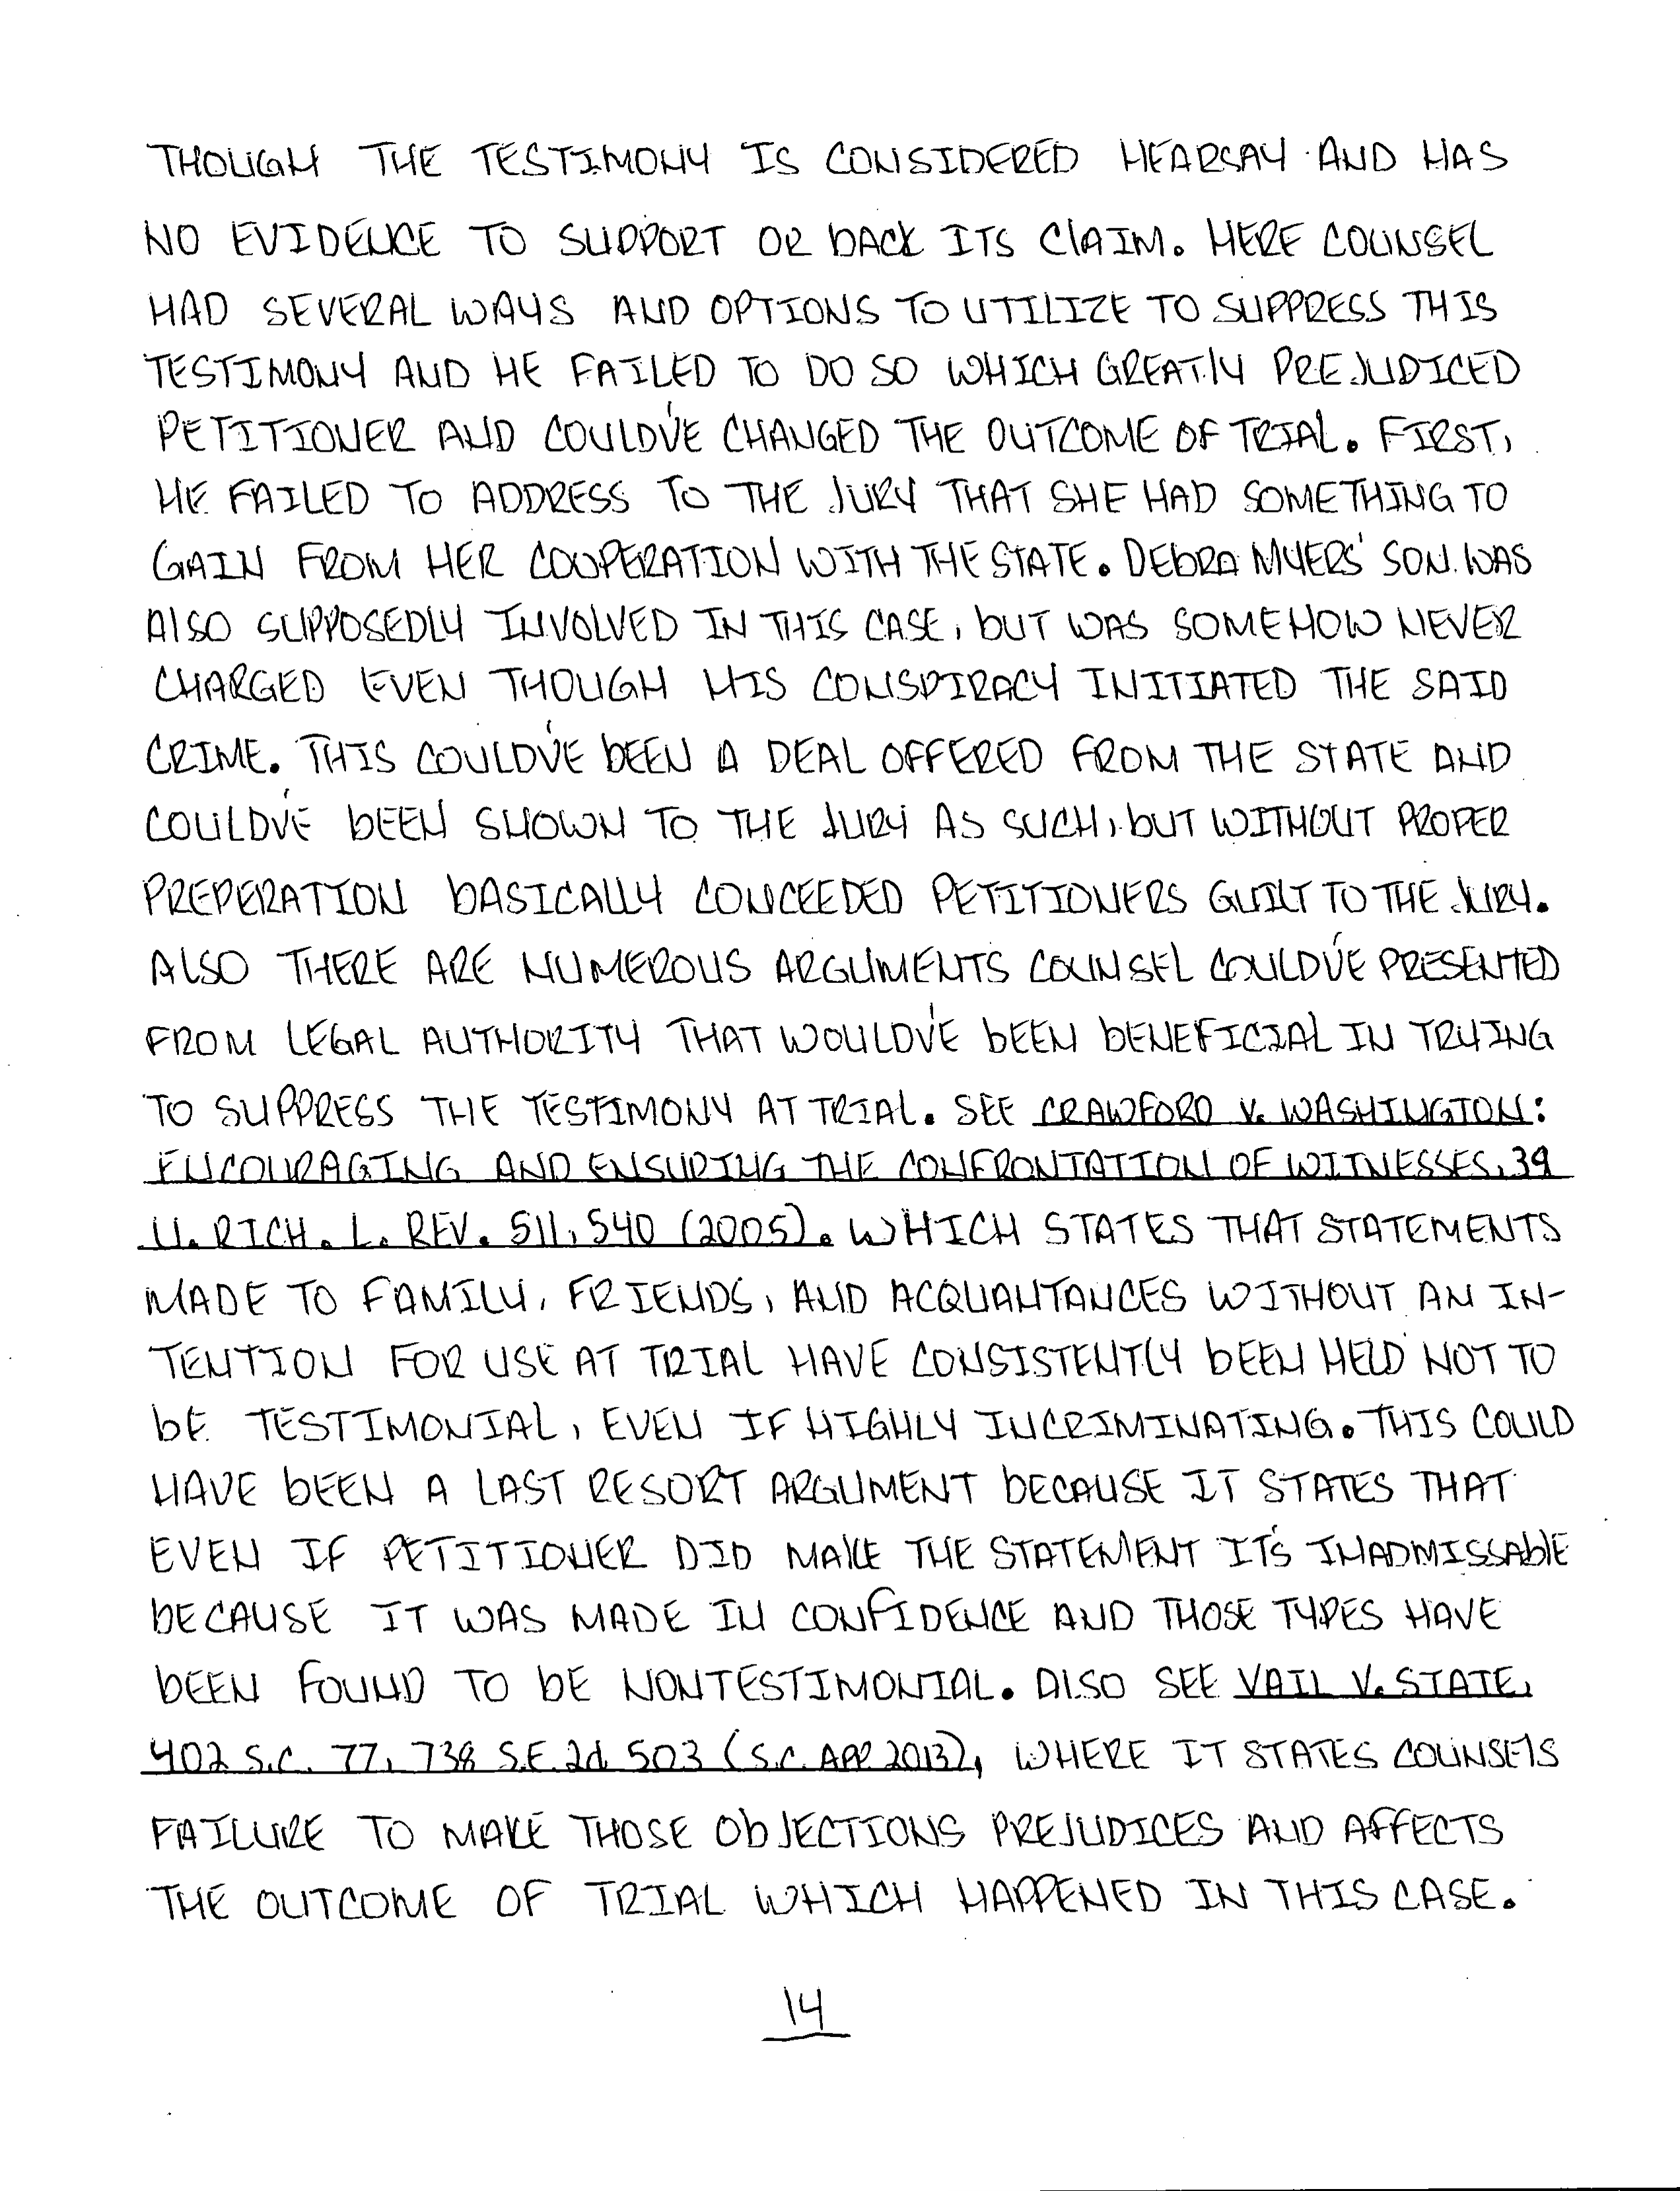 THOUGH THE TESTIMONY IS CONSIDERED HEARSAY AND HAS
NO EVIDENCE TO SUPPORT OR BACK ITS CLAIM. HERE COUNSEL
HAD SEVERAL WAYS AND OPTIONS TO UTILIZE TO SUPPRESS THIS
TESTIMONY AND HE FAILED TO DO SO WHICH GREATLY PREJUDICED
PETITIONER AND COULD'VE CHANGED THE OUTCOME OF TRIAL. FIRST,
HE FAILED TO ADDRESS TO THE JURY THAT SHE HAD SOMETHING TO
GAIN FROM HER COOPERATION WITH THE STATE. DEBRA MYERS' SON WAS
ALSO SUPPOSEDLY INVOLVED IN THIS CASE, BUT WAS SOMEHOW NEVER
CHARGED EVEN THOUGH HIS CONSPIRACY INITIATED THE SAID
CRIME. THIS COULD'VE BEEN A DEAL OFFERED FROM THE STATE AND
COULD'VE BEEN SHOWN TO THE JURY AS SUCH, BUT WITHOUT PROPER
PREPERATION BASICALLY CONCEEDED PETITIONERS GUILT TO THE JURY.
ALSO THERE ARE NUMEROUS ARGUMENTS COUNSEL COULD'VE PRESENTED
FROM LEGAL AUTHORITY THAT WOULD'VE BEEN BENEFICIAL IN TRYING
TO SUPPRESS THE TESTIMONY AT TRIAL. SEE CRAWFORD V. WASHINGTON:
ENCOURAGING AND ENSURING THE CONFRONTATION OF WITNESSES, 39
U. RICH. L. REV. 511, 540 (2005). WHICH STATES THAT STATEMENTS
MADE TO FAMILY, FRIENDS, AND ACQUANTANCES WITHOUT AN IN-
TENTION FOR USE AT TRIAL HAVE CONSISTENTLY BEEN HELD NOT TO
BE TESTIMONIAL, EVEN IF HIGHLY INCRIMINATING. THIS COULD
HAVE BEEN A LAST RESORT ARGUMENT BECAUSE IT STATES THAT
EVEN IF PETITIONER DID MAKE THE STATEMENT IT'S INADMISSABLE
BECAUSE IT WAS MADE IN CONFIDENCE AND THOSE TYPES HAVE
BEEN FOUND TO BE NONTESTIMONIAL. ALSO SEE VAIL V. STATE,
402 S.C. 77, 738 S.E.2d 503 (S.C. APP. 2013), WHERE IT STATES COUNSELS
FAILURE TO MAKE THOSE OBJECTIONS PREJUDICES AND AFFECTS
THE OUTCOME OF TRIAL WHICH HAPPENED IN THIS CASE.
14